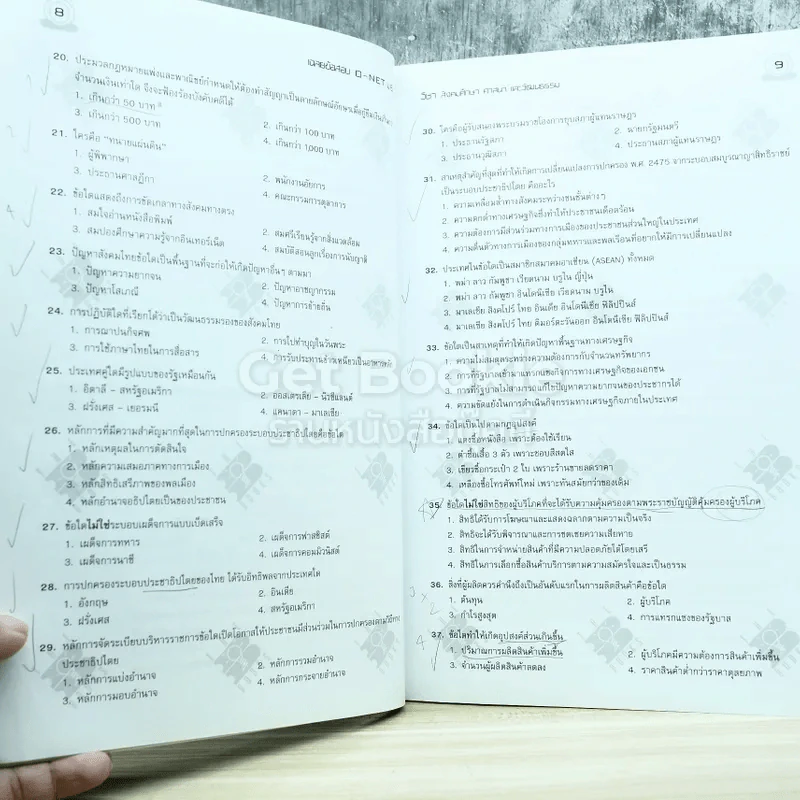 8
เฉลยข้อสอบ O-NET
20. ประมวลกฎหมายแพ่งและพาณิชย์กำหนดให้ต้องทำสัญญาเป็นลายลักษณ์อักษรเมื่อกู้ยืมเงินเกิน
จำนวนเงินเท่าใด จึงจะฟ้องร้องบังคับคดีได้
1. เกินกว่า 50 บาท
2. เกินกว่า 100 บาท
3. เกินกว่า 500 บาท
4. เกินกว่า 1,000 บาท
21. ใครคือ "ทนายแผ่นดิน"
1. ผู้พิพากษา
2. พนักงานอัยการ
3. ประธานศาลฎีกา
4. คณะกรรมการตุลาการ
22. ข้อใดแสดงถึงการขัดเกลาทางสังคมทางตรง
1. สมใจอ่านหนังสือพิมพ์
2. สมศรีเรียนรู้จากสิ่งแวดล้อม
3. สมปองศึกษาความรู้จากอินเทอร์เน็ต
4. สมบัติสอนลูกเรื่องการนับญาติ
23. ปัญหาสังคมไทยข้อใดเป็นพื้นฐานที่จะก่อให้เกิดปัญหาอื่นๆ ตามมา
1. ปัญหาความยากจน
2. ปัญหาอาชญากรรม
3. ปัญหาโสเภณี
4. ปัญหาการย้ายถิ่น
24. การปฏิบัติใดที่เรียกได้ว่าเป็นวัฒนธรรมรองของสังคมไทย
1. การฌาปนกิจศพ
2. การไปทำบุญในวันพระ
3. การใช้ภาษาไทยในการสื่อสาร
4. การรับประทานข้าวเหนียวเป็นอาหารหลัก
25. ประเทศคู่ใดมีรูปแบบของรัฐเหมือนกัน
1. อิตาลี - สหรัฐอเมริกา
2. ออสเตรเลีย - นิวซีแลนด์
3. ฝรั่งเศส - เยอรมนี
4. แคนาดา - มาเลเซีย
26. หลักการที่มีความสำคัญมากที่สุดในการปกครองระบอบประชาธิปไตยคือข้อใด
1. หลักเหตุผลในการตัดสินใจ
2. หลักความเสมอภาคทางการเมือง
3. หลักสิทธิเสรีภาพของพลเมือง
4. หลักอำนาจอธิปไตยเป็นของประชาชน
27. ข้อใดไม่ใช่ระบอบเผด็จการแบบเบ็ดเสร็จ
1. เผด็จการทหาร
2. เผด็จการฟาสซิสต์
3. เผด็จการนาซี
4. เผด็จการคอมมิวนิสต์
28. การปกครองระบอบประชาธิปไตยของไทย ได้รับอิทธิพลจากประเทศใด
1. อังกฤษ
2. อินเดีย
3. ฝรั่งเศส
4. สหรัฐอเมริกา
29. หลักการจัดระเบียบบริหารราชการข้อใดเปิดโอกาสให้ประชาชนมีส่วนร่วมในการปกครองตามวิถีทาง
ประชาธิปไตย
1. หลักการแบ่งอำนาจ
2. หลักการรวมอำนาจ
3. หลักการมอบอำนาจ
4. หลักการกระจายอำนาจ
วิชา สังคมศึกษา ศาสนา และวัฒนธรรม
9
30. ใครคือผู้รับสนองพระบรมราชโองการยุบสภาผู้แทนราษฎร
1. ประธานรัฐสภา
2. นายกรัฐมนตรี
3. ประธานวุฒิสภา
4. ประธานสภาผู้แทนราษฎร
31. สาเหตุสำคัญที่สุดที่ทำให้เกิดการเปลี่ยนแปลงการปกครอง พ.ศ. 2475 จากระบอบสมบูรณาญาสิทธิราชย์
เป็นระบอบประชาธิปไตย คืออะไร
1. ความเหลื่อมล้ำทางสังคมระหว่างชนชั้นต่างๆ
2. ความตกต่ำทางเศรษฐกิจซึ่งทำให้ประชาชนเดือดร้อน
3. ความต้องการมีส่วนร่วมทางการเมืองของประชาชนส่วนใหญ่ในประเทศ
4. ความตื่นตัวทางการเมืองของกลุ่มทหารและพลเรือนที่อยากให้มีการเปลี่ยนแปลง
32. ประเทศในข้อใดเป็นสมาชิกสมาคมอาเซียน (ASEAN) ทั้งหมด
1. พม่า ลาว กัมพูชา เวียดนาม ญี่ปุ่น
2. พม่า ลาว กัมพูชา อินโดนีเซีย เวียดนาม บรูไน
3. มาเลเซีย สิงคโปร์ ไทย อินเดีย อินโดนีเซีย ฟิลิปปินส์
4. มาเลเซีย สิงคโปร์ ไทย ติมอร์ตะวันออก อินโดนีเซีย ฟิลิปปินส์
33. ข้อใดเป็นสาเหตุที่ทำให้เกิดปัญหาพื้นฐานทางเศรษฐกิจ
1. ความไม่สมดุลระหว่างความต้องการกับจำนวนทรัพยากร
2. การที่รัฐบาลเข้ามาแทรกแซงกิจการทางเศรษฐกิจของเอกชน
3. การที่รัฐบาลไม่สามารถแก้ไขปัญหาความยากจนของประชากรได้
4. ความขัดแย้งในการดำเนินกิจกรรมทางเศรษฐกิจภายในประเทศ
34. ข้อใดเป็นไปตามกฎอุปสงค์
1. แดงซื้อหนังสือ เพราะต้องใช้เรียน
2. ดำซื้อเสื้อ 3 ตัว เพราะชอบสีสดใส
3. เขียวซื้อกระเป๋า 2 ใบ เพราะร้านขายลดราคา
4. เหลืองซื้อโทรศัพท์ใหม่ เพราะทันสมัยกว่าของเดิม
35. ข้อใดไม่ใช่สิทธิของผู้บริโภคที่จะได้รับความคุ้มครองตามพระราชบัญญัติคุ้มครองผู้บริโภค
1. สิทธิได้รับการโฆษณาและแสดงฉลากตามความเป็นจริง
2. สิทธิจะได้รับพิจารณาและการชดเชยความเสียหาย
3. สิทธิในการจำหน่ายสินค้าที่มีความปลอดภัยได้โดยเสรี
4. สิทธิในการเลือกซื้อสินค้าบริการตามความสมัครใจและเป็นธรรม
36. สิ่งที่ผู้ผลิตควรคำนึงถึงเป็นอันดับแรกในการผลิตสินค้าคือข้อใด
1. ต้นทุน
2. ผู้บริโภค
3. กำไรสูงสุด
4. การแทรกแซงของรัฐบาล
37. ข้อใดทำให้เกิดอุปสงค์ส่วนเกินขึ้น
1. ปริมาณการผลิตสินค้าเพิ่มขึ้น
2. ผู้บริโภคมีความต้องการสินค้าเพิ่มขึ้น
3. จำนวนผู้ผลิตสินค้าลดลง
4. ราคาสินค้าต่ำกว่าราคาดุลยภาพ